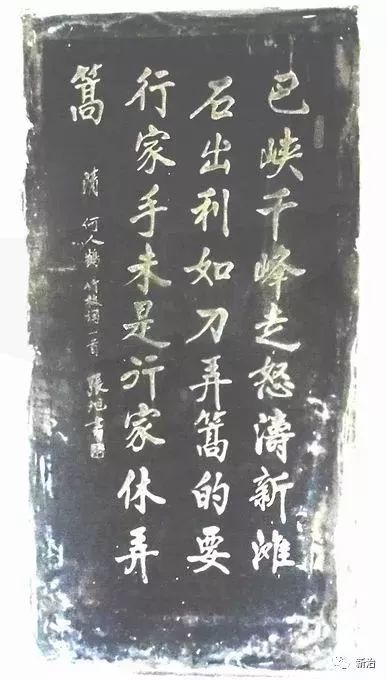 巴峽千峰走怒濤新滩
石出利如刀弄篙的要
行家手未是行家休弄
篙
清 何人鶴 竹枝詞一首 張旭書
新治